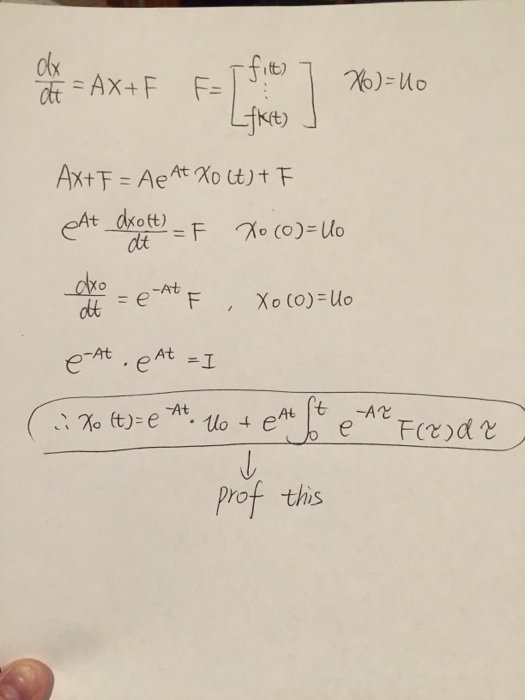 dx/dt = AX+F F= [f1(t) ⋮ fk(t)] X(0)=U0
AX+F = Ae^At X0(t)+F
e^At dx0(t)/dt = F X0(0)=U0
dx0/dt = e^-At F , X0(0)=U0
e^-At · e^At = I
∴ X0(t)=e^-At · U0 + e^At ∫0^t e^-Aτ F(τ)dτ
↓
prof this